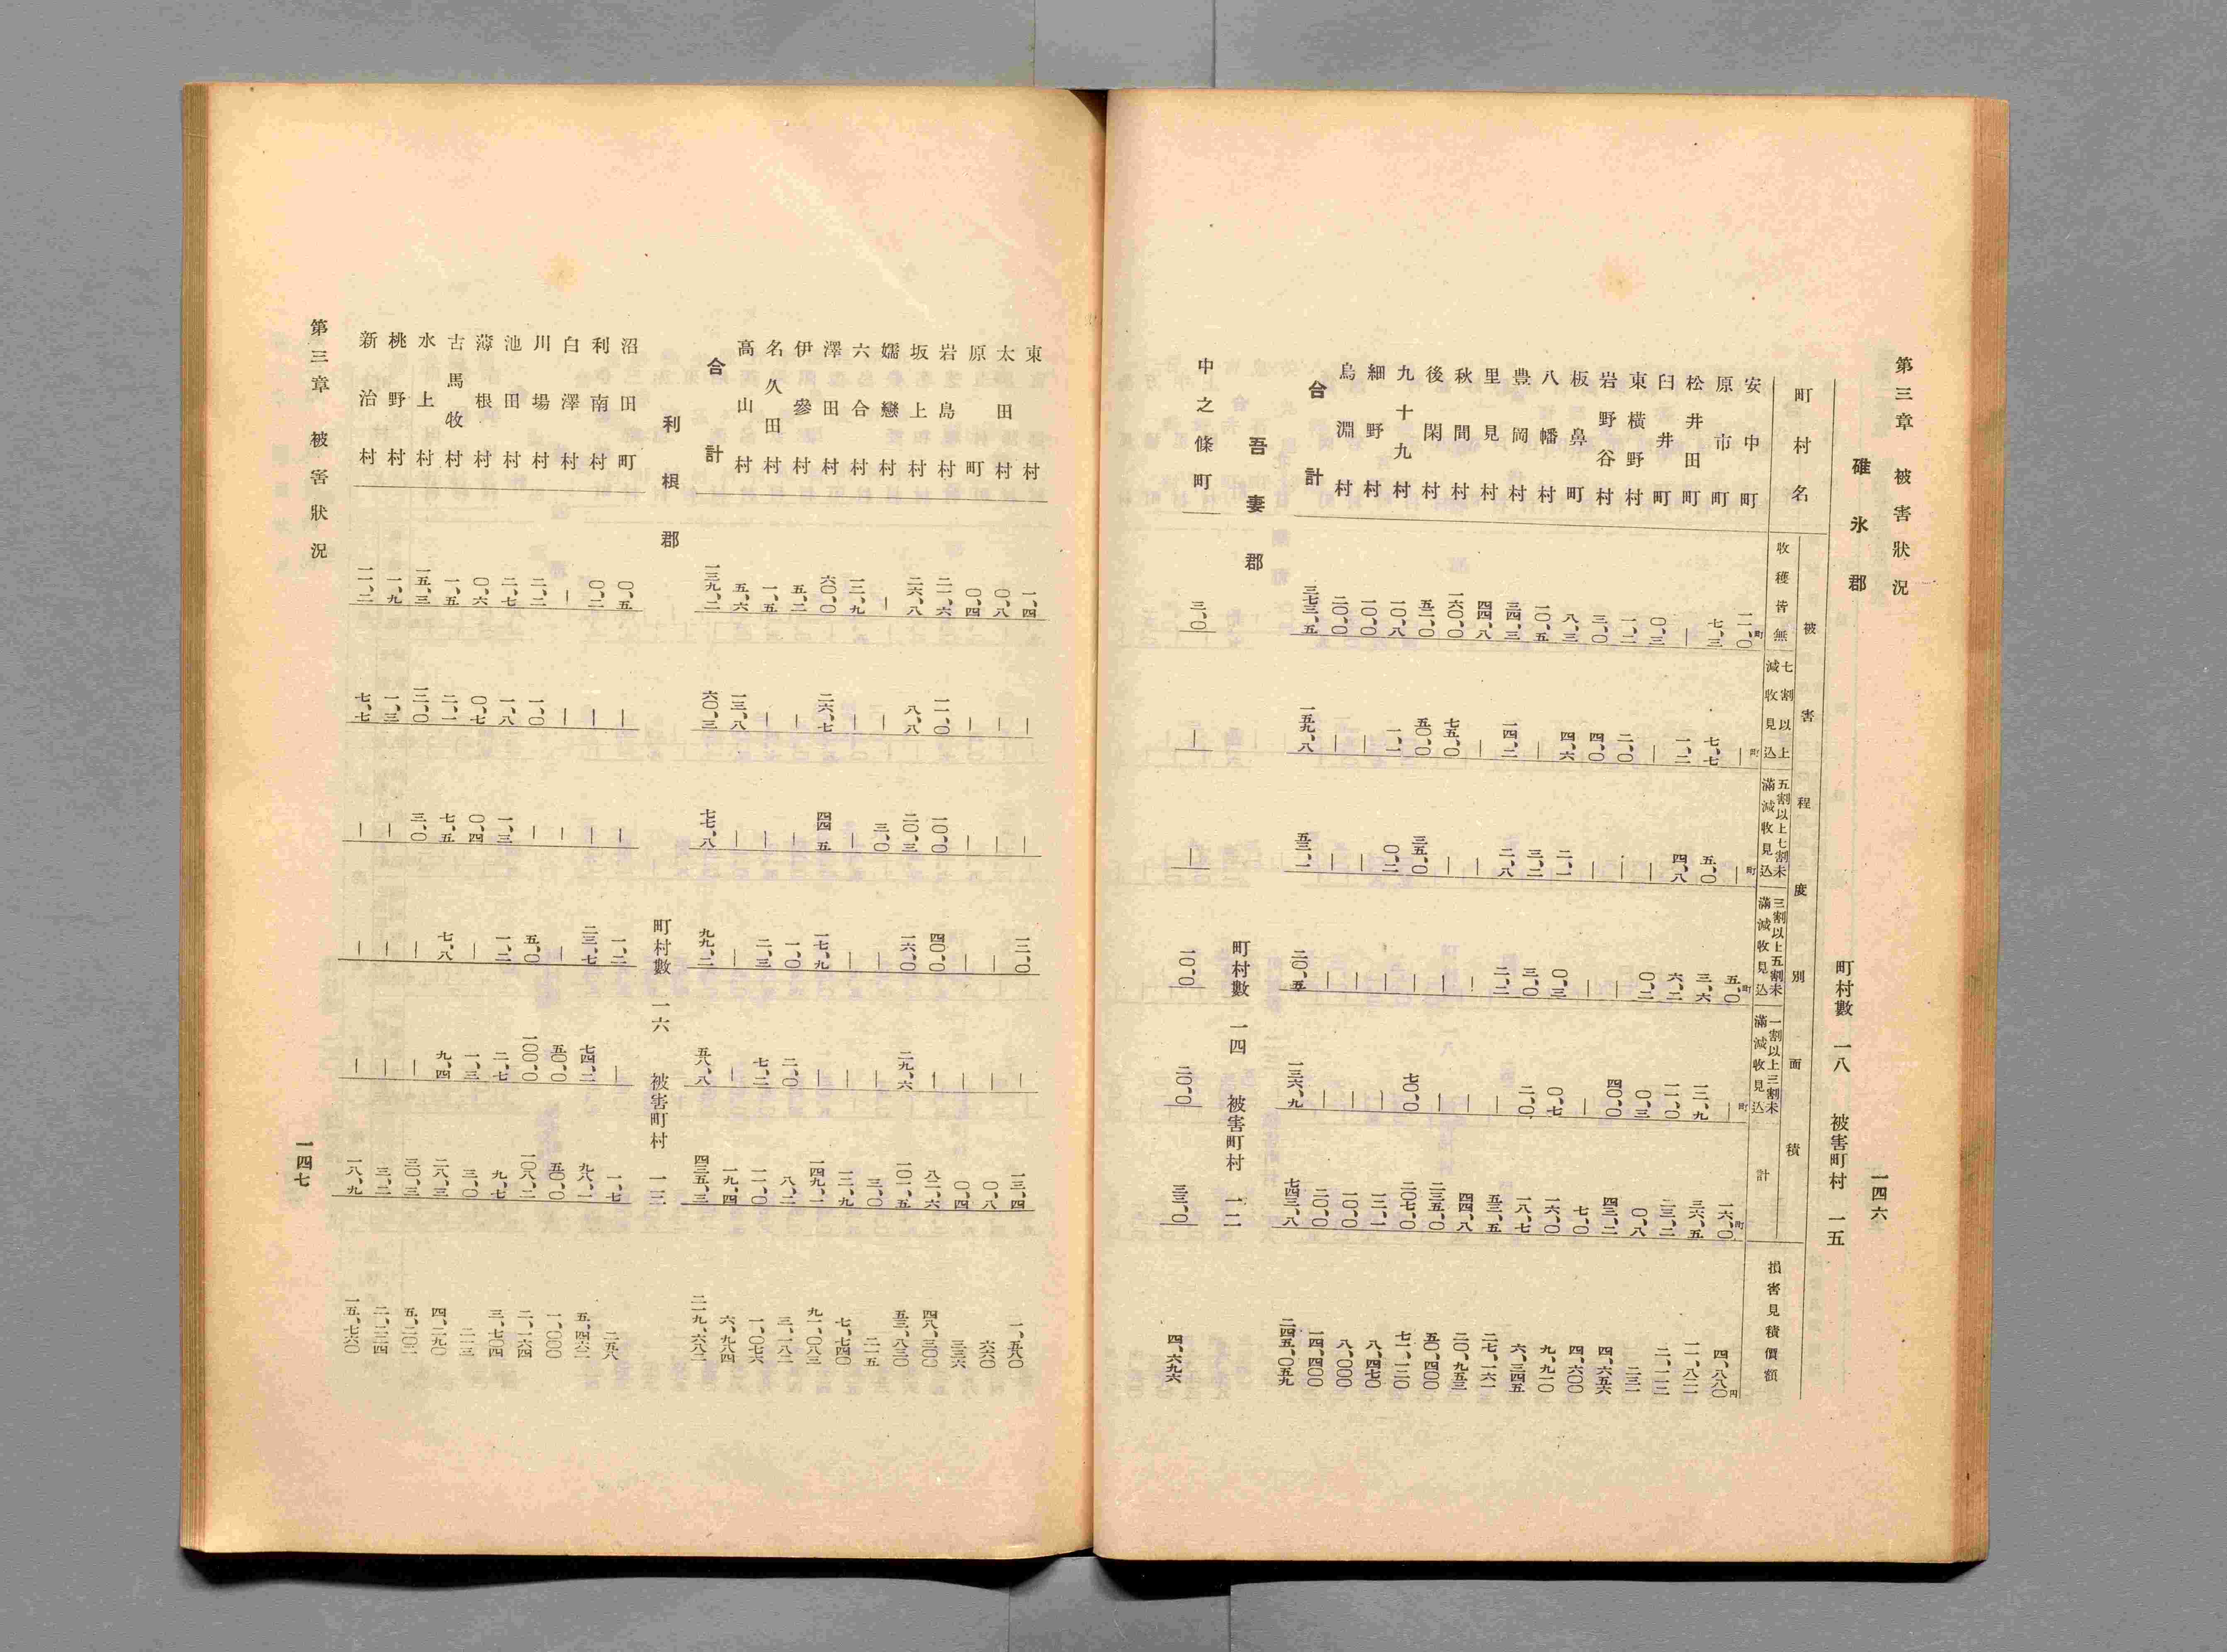 第三章 被害狀況 一四六
碓氷郡 町村數 一八 被害町村 一五
町村名 被害程度別面積 損害見積價額
收穫皆無 七割以上減收見込 五割以上七割未滿減收見込 三割以上五割未滿減收見込 一割以上三割未滿減收見込 計
安中町 一一、〇町 ｜町 ｜町 五、〇町 ｜町 一六、〇町 四、八八〇円
原市町 七、三 七、七 五、〇 三、六 一二、九 三六、五 一一、八二一
松井田町 ｜ 一、二 四、八 六、二 一一、〇 二三、二 二、一一二
臼井町 〇、三 ｜ ｜ 〇、二 〇、三 〇、八 二三一
東横野村 一、二 二、〇 ｜ ｜ 四〇、〇 四三、二 四、六五六
岩野谷村 三、〇 四、〇 ｜ ｜ ｜ 七、〇 四、六〇〇
板鼻町 八、三 四、六 二、一 〇、三 〇、七 一六、〇 九、九一〇
八幡村 一〇、五 ｜ 三、二 三、〇 二、〇 一八、七 六、三四五
豊岡村 三四、三 一四、二 二、八 二、二 ｜ 五三、五 二七、一六一
里見村 四四、八 ｜ ｜ ｜ ｜ 四四、八 二〇、九五三
秋間村 一六〇、〇 七五、〇 ｜ ｜ ｜ 二三五、〇 五〇、四〇〇
後閑村 五二、〇 五〇、〇 三五、〇 ｜ 七〇、〇 二〇七、〇 七一、一二〇
九十九村 一〇、八 一、一 〇、二 ｜ ｜ 一二、一 八、四七〇
細野村 一〇、〇 ｜ ｜ ｜ ｜ 一〇、〇 八、〇〇〇
烏淵村 二〇、〇 ｜ ｜ ｜ ｜ 二〇、〇 一四、四〇〇
合計 三七三、五 一五九、八 五三、一 二〇、五 一三六、九 七四三、八 二四五、〇五九
吾妻郡 町村數 一四 被害町村 一二
中之條町 三、〇 ｜ ｜ 一〇、〇 二〇、〇 三三、〇 四、六九六
東村 一、四 ｜ ｜ 一二、〇 ｜ 一三、四 一、五八〇
太田村 〇、八 ｜ ｜ ｜ ｜ 〇、八 六六〇
原町 〇、四 ｜ ｜ ｜ ｜ 〇、四 三三六
岩島村 二一、六 一一、〇 一〇、〇 四〇、〇 ｜ 八二、六 四八、三〇〇
坂上村 二六、八 八、八 二〇、三 一六、〇 二九、六 一〇一、五 五三、八三〇
嬬戀村 ｜ ｜ 三、〇 ｜ ｜ 三、〇 二一五
六合村 一二、九 ｜ ｜ ｜ ｜ 一二、九 七、七四〇
澤田村 六〇、〇 二六、七 四四、五 一七、九 ｜ 一四九、一 九一、〇八三
伊參村 五、二 ｜ ｜ 一、〇 二、〇 八、二 三、一八二
名久田村 一、五 ｜ ｜ 二、三 七、二 一一、〇 一、〇七六
高山村 五、六 一三、八 ｜ ｜ ｜ 一九、四 六、九八四
合計 一三九、二 六〇、三 七七、八 九九、二 五八、八 四三五、三 二一九、六八二
利根郡 町村數 一六 被害町村 一三
沼田町 〇、五 ｜ ｜ 一、二 ｜ 一、七 二五八
利南村 〇、二 ｜ ｜ 二三、七 七四、二 九八、一 五、四六二
白澤村 ｜ ｜ ｜ ｜ 五〇、〇 五〇、〇 一、〇〇〇
川場村 二、二 一、〇 ｜ 五、〇 一〇〇、〇 一〇八、二 二、一六四
池田村 二、七 一、八 一、三 一、二 二、七 九、七 三、七〇四
薄根村 〇、六 〇、七 〇、四 ｜ 一、三 三、〇 二一三
古馬牧村 一、五 二、一 七、五 七、八 九、四 二八、三 四、二九〇
水上村 一五、三 一二、〇 三、〇 ｜ ｜ 三〇、三 五、二〇二
桃野村 一、九 一、三 ｜ ｜ ｜ 三、二 二、二二四
新治村 一一、二 七、七 ｜ ｜ ｜ 一八、九 一五、七六〇
第三章 被害狀況 一四七